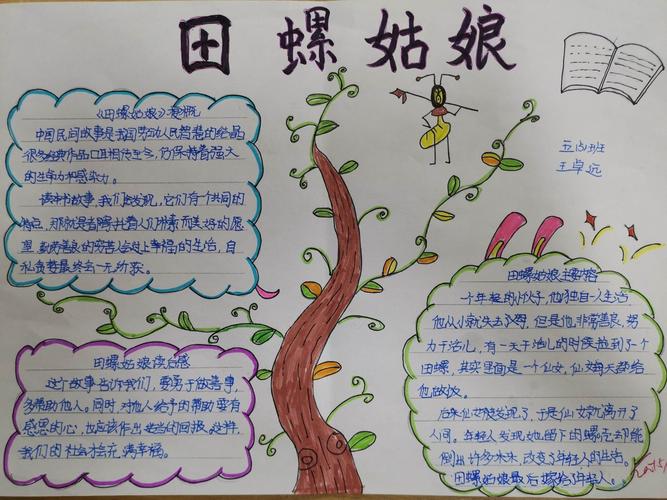 田螺姑娘
五(5)班
王卓远
《田螺姑娘》梗概
中国民间故事是我国劳动人民智慧的结晶
很多经典作品口耳相传至今,仍保持着强大
的生命力和感染力。
读中外故事,我们会发现,它们有一个共同的
特点,那就是都寄托着人们朴素而美好的愿
望:勤劳善良的穷苦人会过上幸福的生活,自
私贪婪最终会一无所获。
田螺姑娘读后感
这个故事告诉我们,要勇于做善事,
多帮助他人。同时,对他人给予的帮助要有
感恩的心,也应该作出适当的回报。这样,
我们的社会才会充满幸福。
田螺姑娘主要内容
一个年轻的小伙子,他独自一人生活
他从小就失去了父母,但是他非常善良,努
力干活儿,有一天干活儿的时候捡到了一个
田螺,其实里面是一个仙女,仙女每天都给
他做饭。
后来仙女被发现了,于是仙女就离开了
人间。年轻人发现她留下的螺壳却能
倒出许多大米,改变了年轻人的生活。
田螺姑娘最后嫁给了年轻人。